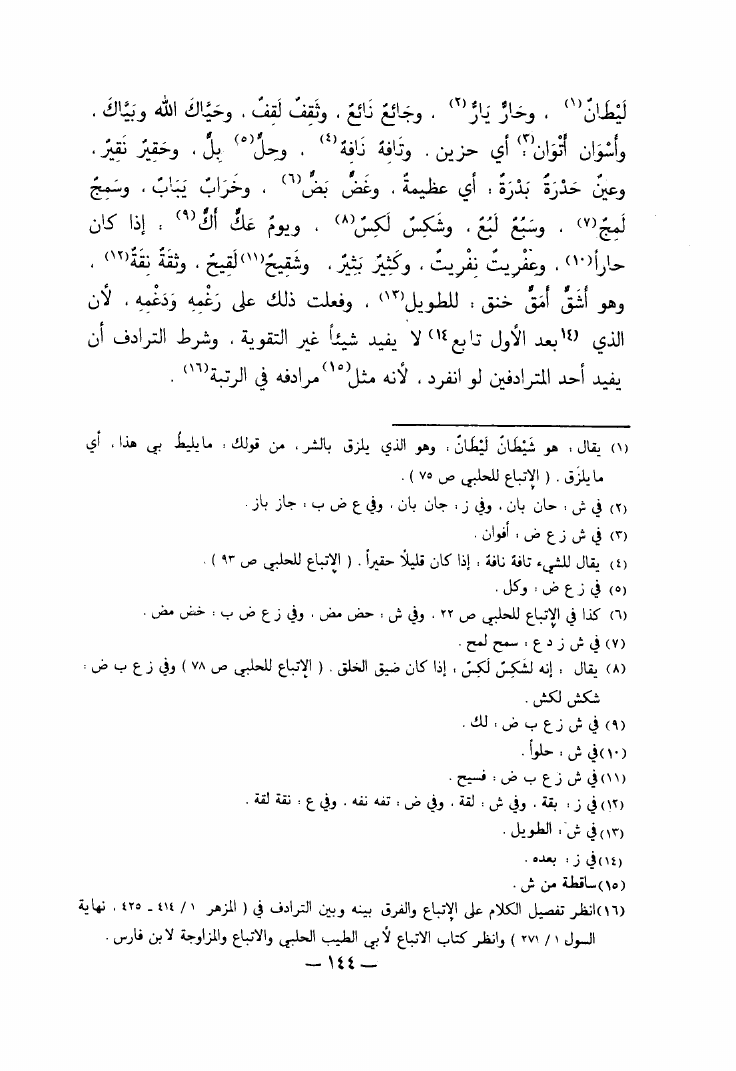 لَيْطَانٌ(١) ، وحَارٌّ يَارٌّ(٢) ، وجَائِعٌ نَائِعٌ ، وثَقِفٌ لَقِفٌ ، وحَيَّاكَ الله وبَيَّاكَ ،
وأَسْوَان أَتْوَان(٣): أي حزين . وتَافِهٌ نَافِهٌ(٤) ، وحِلٌّ(٥) بِلٌّ ، وحَقِيرٌ نَقِيرٌ ،
وعينٌ حَدْرَةٌ بَدْرَةٌ : أي عظيمةٌ ، وغَضٌّ بَضٌّ(٦) ، وخَرَابٌ يَبَابٌ ، وسَمِجٌ
لَمِجٌ(٧) ، وسَبُعٌ لَبُعٌ ، وشَكِسٌ لَكِسٌ(٨) ، ويومٌ عَكٌّ أَكٌّ(٩) : إذا كان
حاراً(١٠) ، وعِفْرِيتٌ نِفْرِيتٌ ، وكَثِيرٌ بَثِيرٌ ، وشَقِيحٌ(١١) لَقِيحٌ ، وثقَةٌ نِقَةٌ(١٢) ،
وهو أَشَقُّ أَمَقُّ خنق : للطويل(١٣) ، وفعلت ذلك على رَغْمِهِ وَدَغْمِهِ ، لأن
الذي (١٤بعد الأول تابع١٤) لا يفيد شيئاً غير التقوية ، وشرط الترادف أن
يفيد أحد المترادفين لو انفرد ، لأنه مثل(١٥) مرادفه في الرتبة(١٦) .
(١) يقال : هو شَيْطَانٌ لَيْطَانٌ : وهو الذي يلزق بالشر ، من قولك : مايليطُ بي هذا ، أي
مايلزَق . ( الإتباع للحلبي ص ٧٥ ) .
(٢) في ش : حان بان ، وفي ز : جان بان ، وفي ع ض ب : جاز باز .
(٣) في ش ز ع ض : أفوان .
(٤) يقال للشيء تافة نافة : إذا كان قليلًا حقيراً . ( الإتباع للحلبي ص ٩٣ ) .
(٥) في ز ع ض : وكل .
(٦) كذا في الإتباع للحلبي ص ٢٢ . وفي ش : حض مض ، وفي ز ع ض ب : خض مض .
(٧) في ش ز د ع : سمح لمح .
(٨) يقال : إنه لشَكِسٌ لَكِسٌ ، إذا كان ضيق الخلق . ( الإتباع للحلبي ص ٧٨ ) وفي ز ع ب ض :
شكش لكش .
(٩) في ش ز ع ب ض : لك .
(١٠) في ش : حلوا .
(١١) في ش ز ع ب ض : فسيح .
(١٢) في ز : بقة ، وفي ش : لقة ، وفي ض : تفه نفه ، وفي ع : نقة لقة .
(١٣) في ش : الطويل .
(١٤) في ز : بعده .
(١٥) ساقطة من ش .
(١٦) انظر تفصيل الكلام على الإتباع والفرق بينه وبين الترادف في ( المزهر ١ / ٤١٤ ـ ٤٢٥ ، نهاية
السول ١ / ٢٧١ ) وانظر كتاب الاتباع لأبي الطيب الحلبي والاتباع والمزاوجة لابن فارس .
— ١٤٤ —